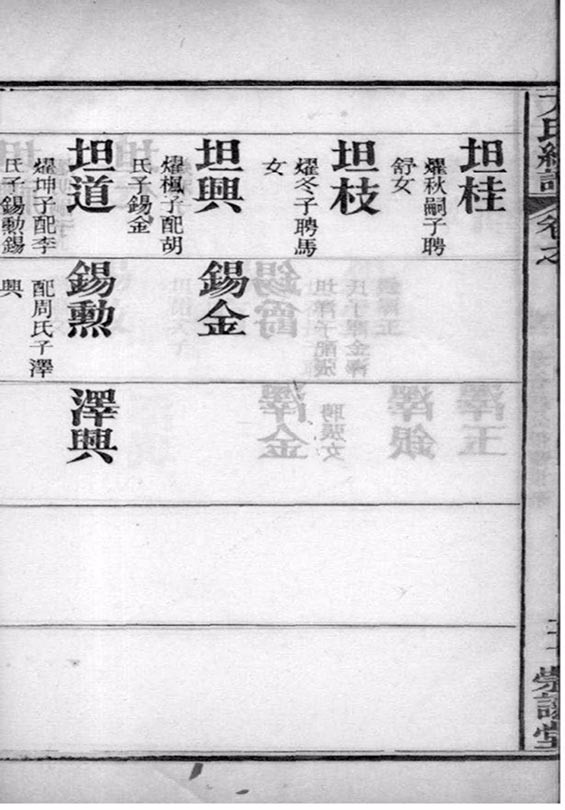 卷之
坦桂
燿秋嗣子聘
舒女
坦枝
燿冬子聘馬
女
坦興
燿楓子配胡
氏子錫金
坦道
燿坤子配李
氏子錫勳錫
錫金
錫勳
配周氏子澤
興
澤興